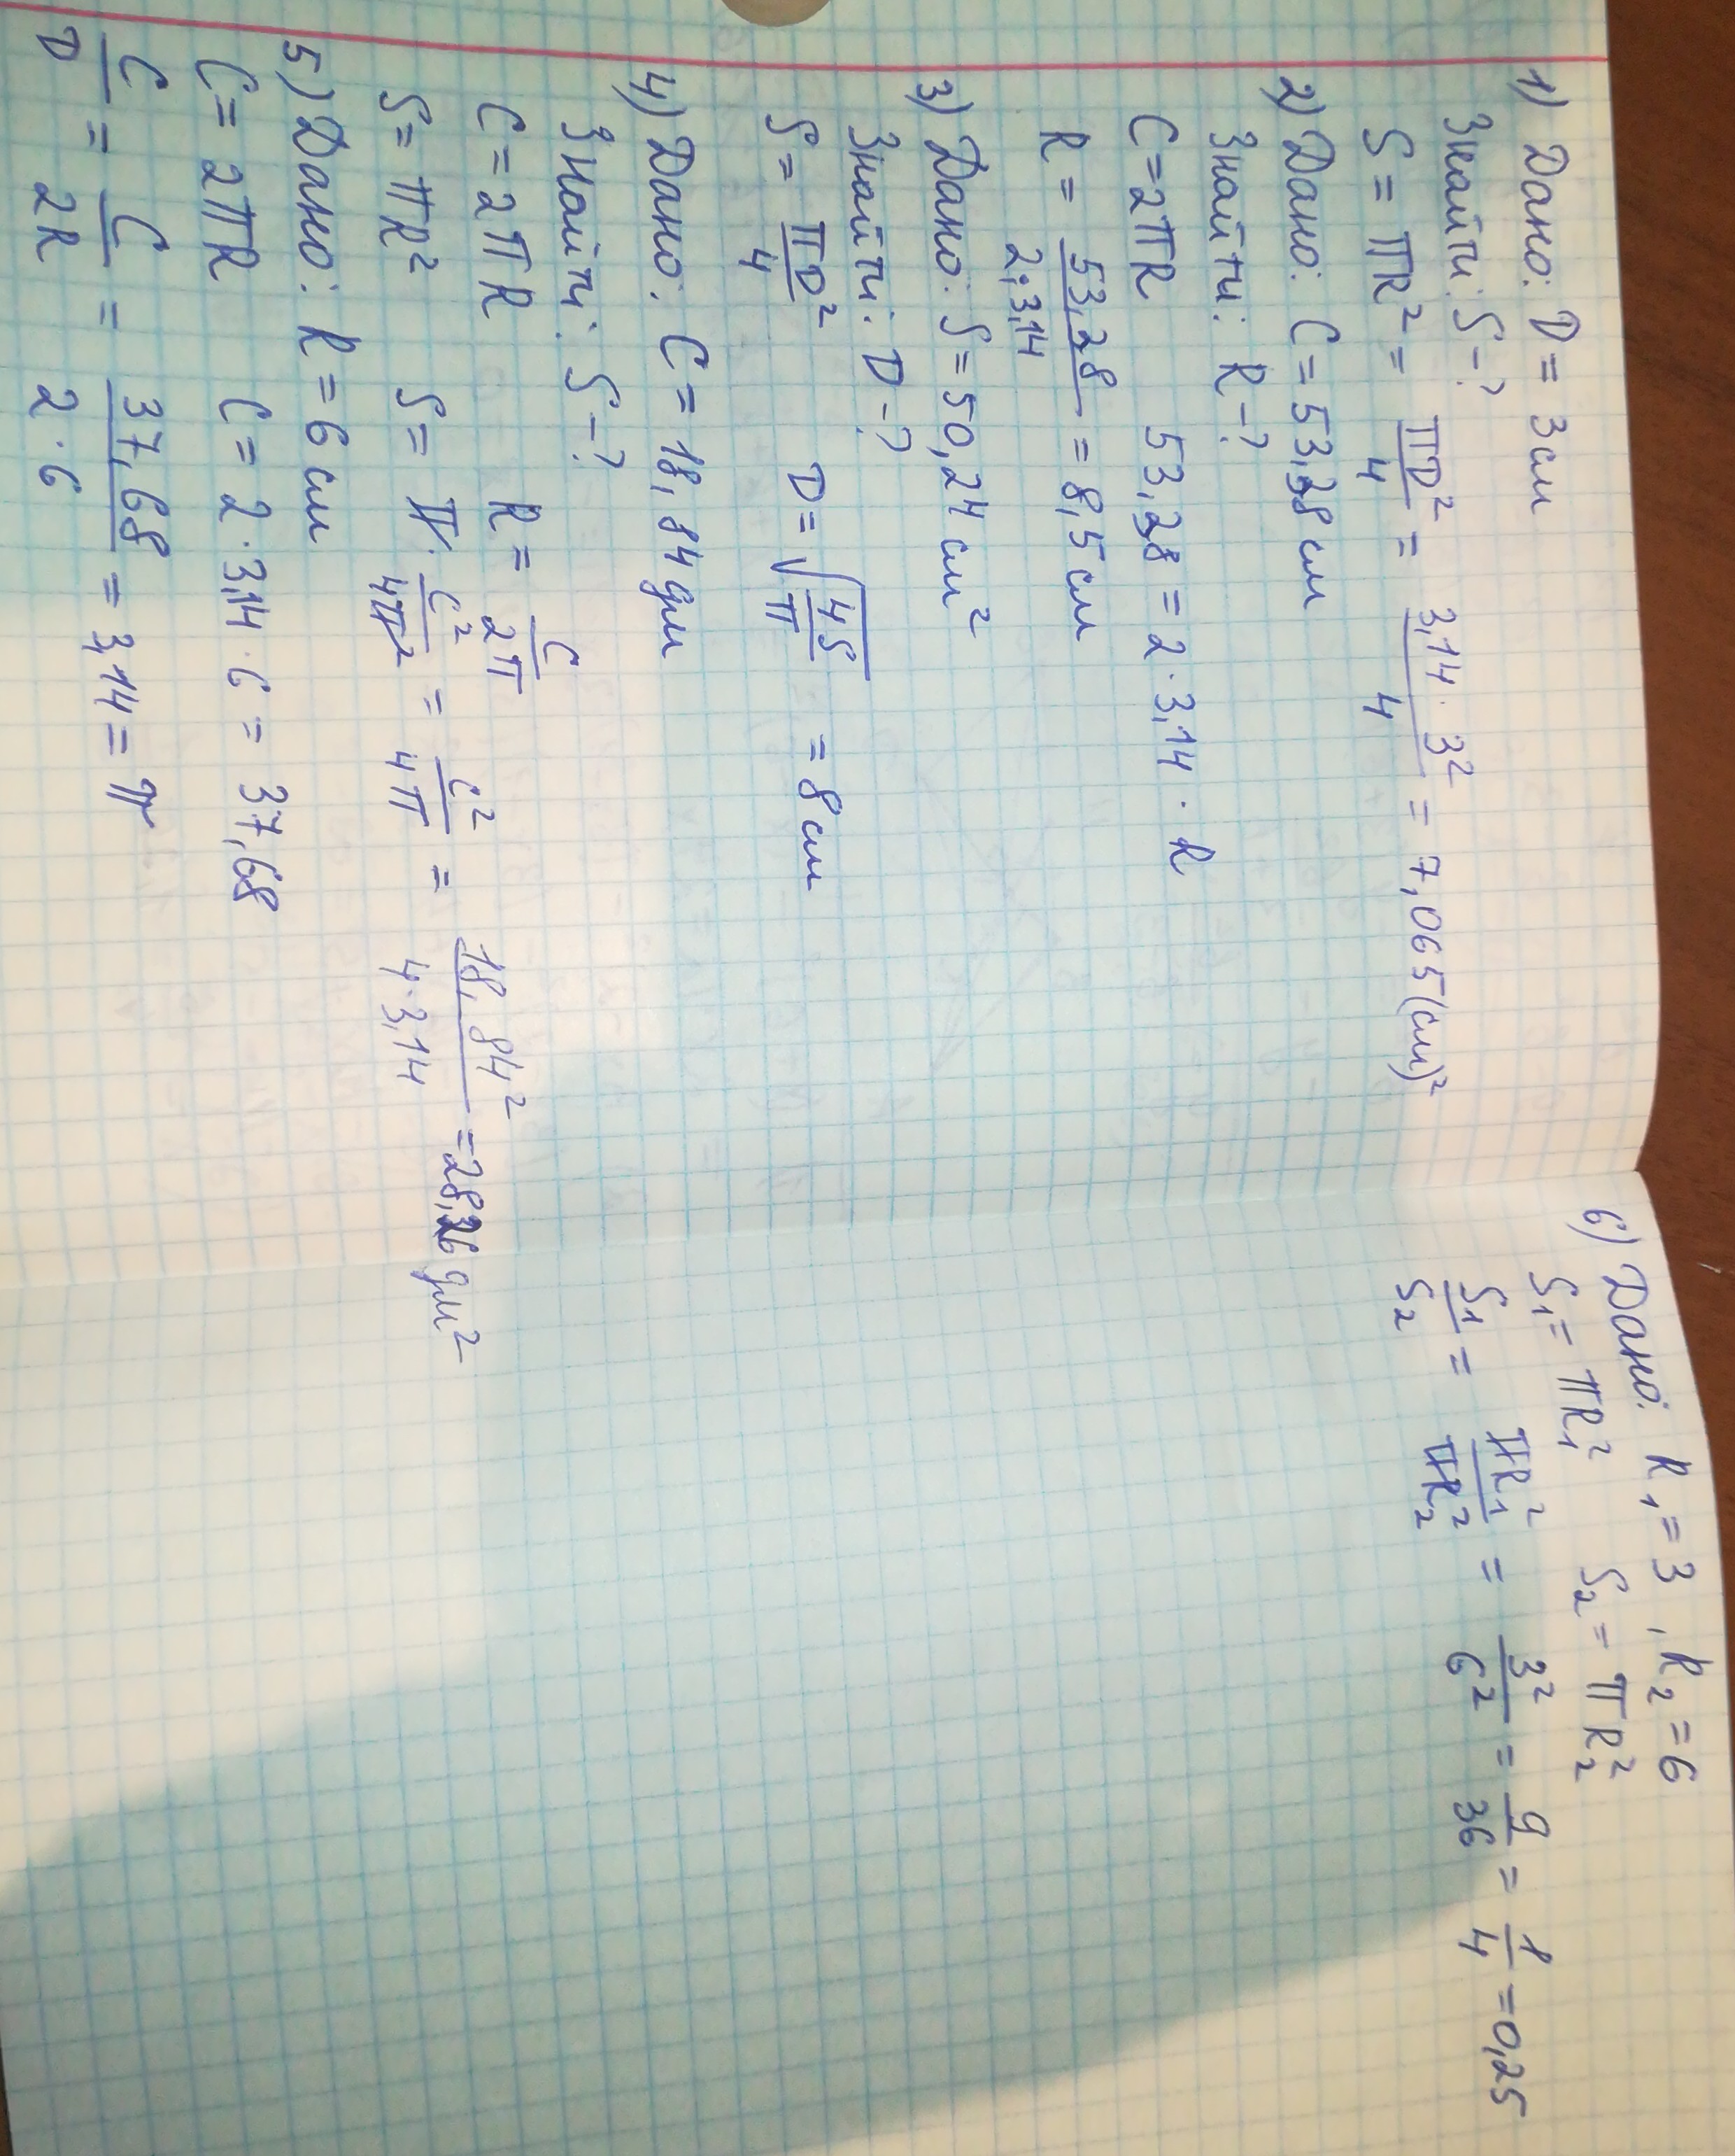 1) Дано: D = 3 см
Знайти: S-?
S = πR² = πD²/4 = 3,14 · 3²/4 = 7,065 (см)²
2) Дано: C = 53,38 см
Знайти: R-?
C = 2πR 53,38 = 2 · 3,14 · R
R = 53,28/2·3,14 = 8,5 см
3) Дано: S = 50,24 см²
Знайти: D-?
S = πD²/4 D = √4S/π = 8 см
4) Дано: C = 18,84 дм
Знайти: S-?
C = 2πR R = C/2π
S = πR² S = π · C²/4π² = C²/4π = 18,84²/4·3,14 = 28,26 дм²
5) Дано: R = 6 см
C = 2πR C = 2 · 3,14 · 6 = 37,68
C/D = C/2R = 37,68/2·6 = 3,14 = π
6) Дано: R₁ = 3, R₂ = 6
S₁ = πR₁² S₂ = πR₂²
S₁/S₂ = πR₁²/πR₂² = 3²/6² = 9/36 = 1/4 = 0,25